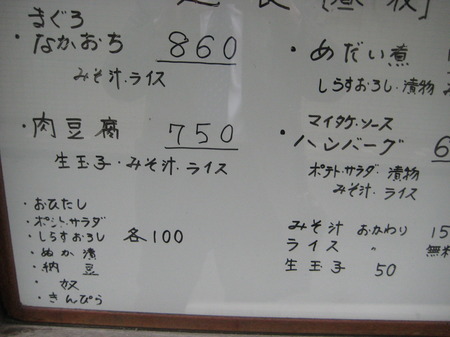 まぐろ
・なかおち 860
みそ汁・ライス
・肉豆腐 750
生玉子・みそ汁・ライス
・おひたし
・ポテト・サラダ
・しらすおろし 各100
・ぬか漬
・納豆
・奴
・きんぴら
・めだい煮
しらすおろし・漬物
マイタケ・ソース
・ハンバーグ 6
ポテト・サラダ・漬物
みそ汁・ライス
みそ汁 おかわり 15
ライス 〃 無料
生玉子 50